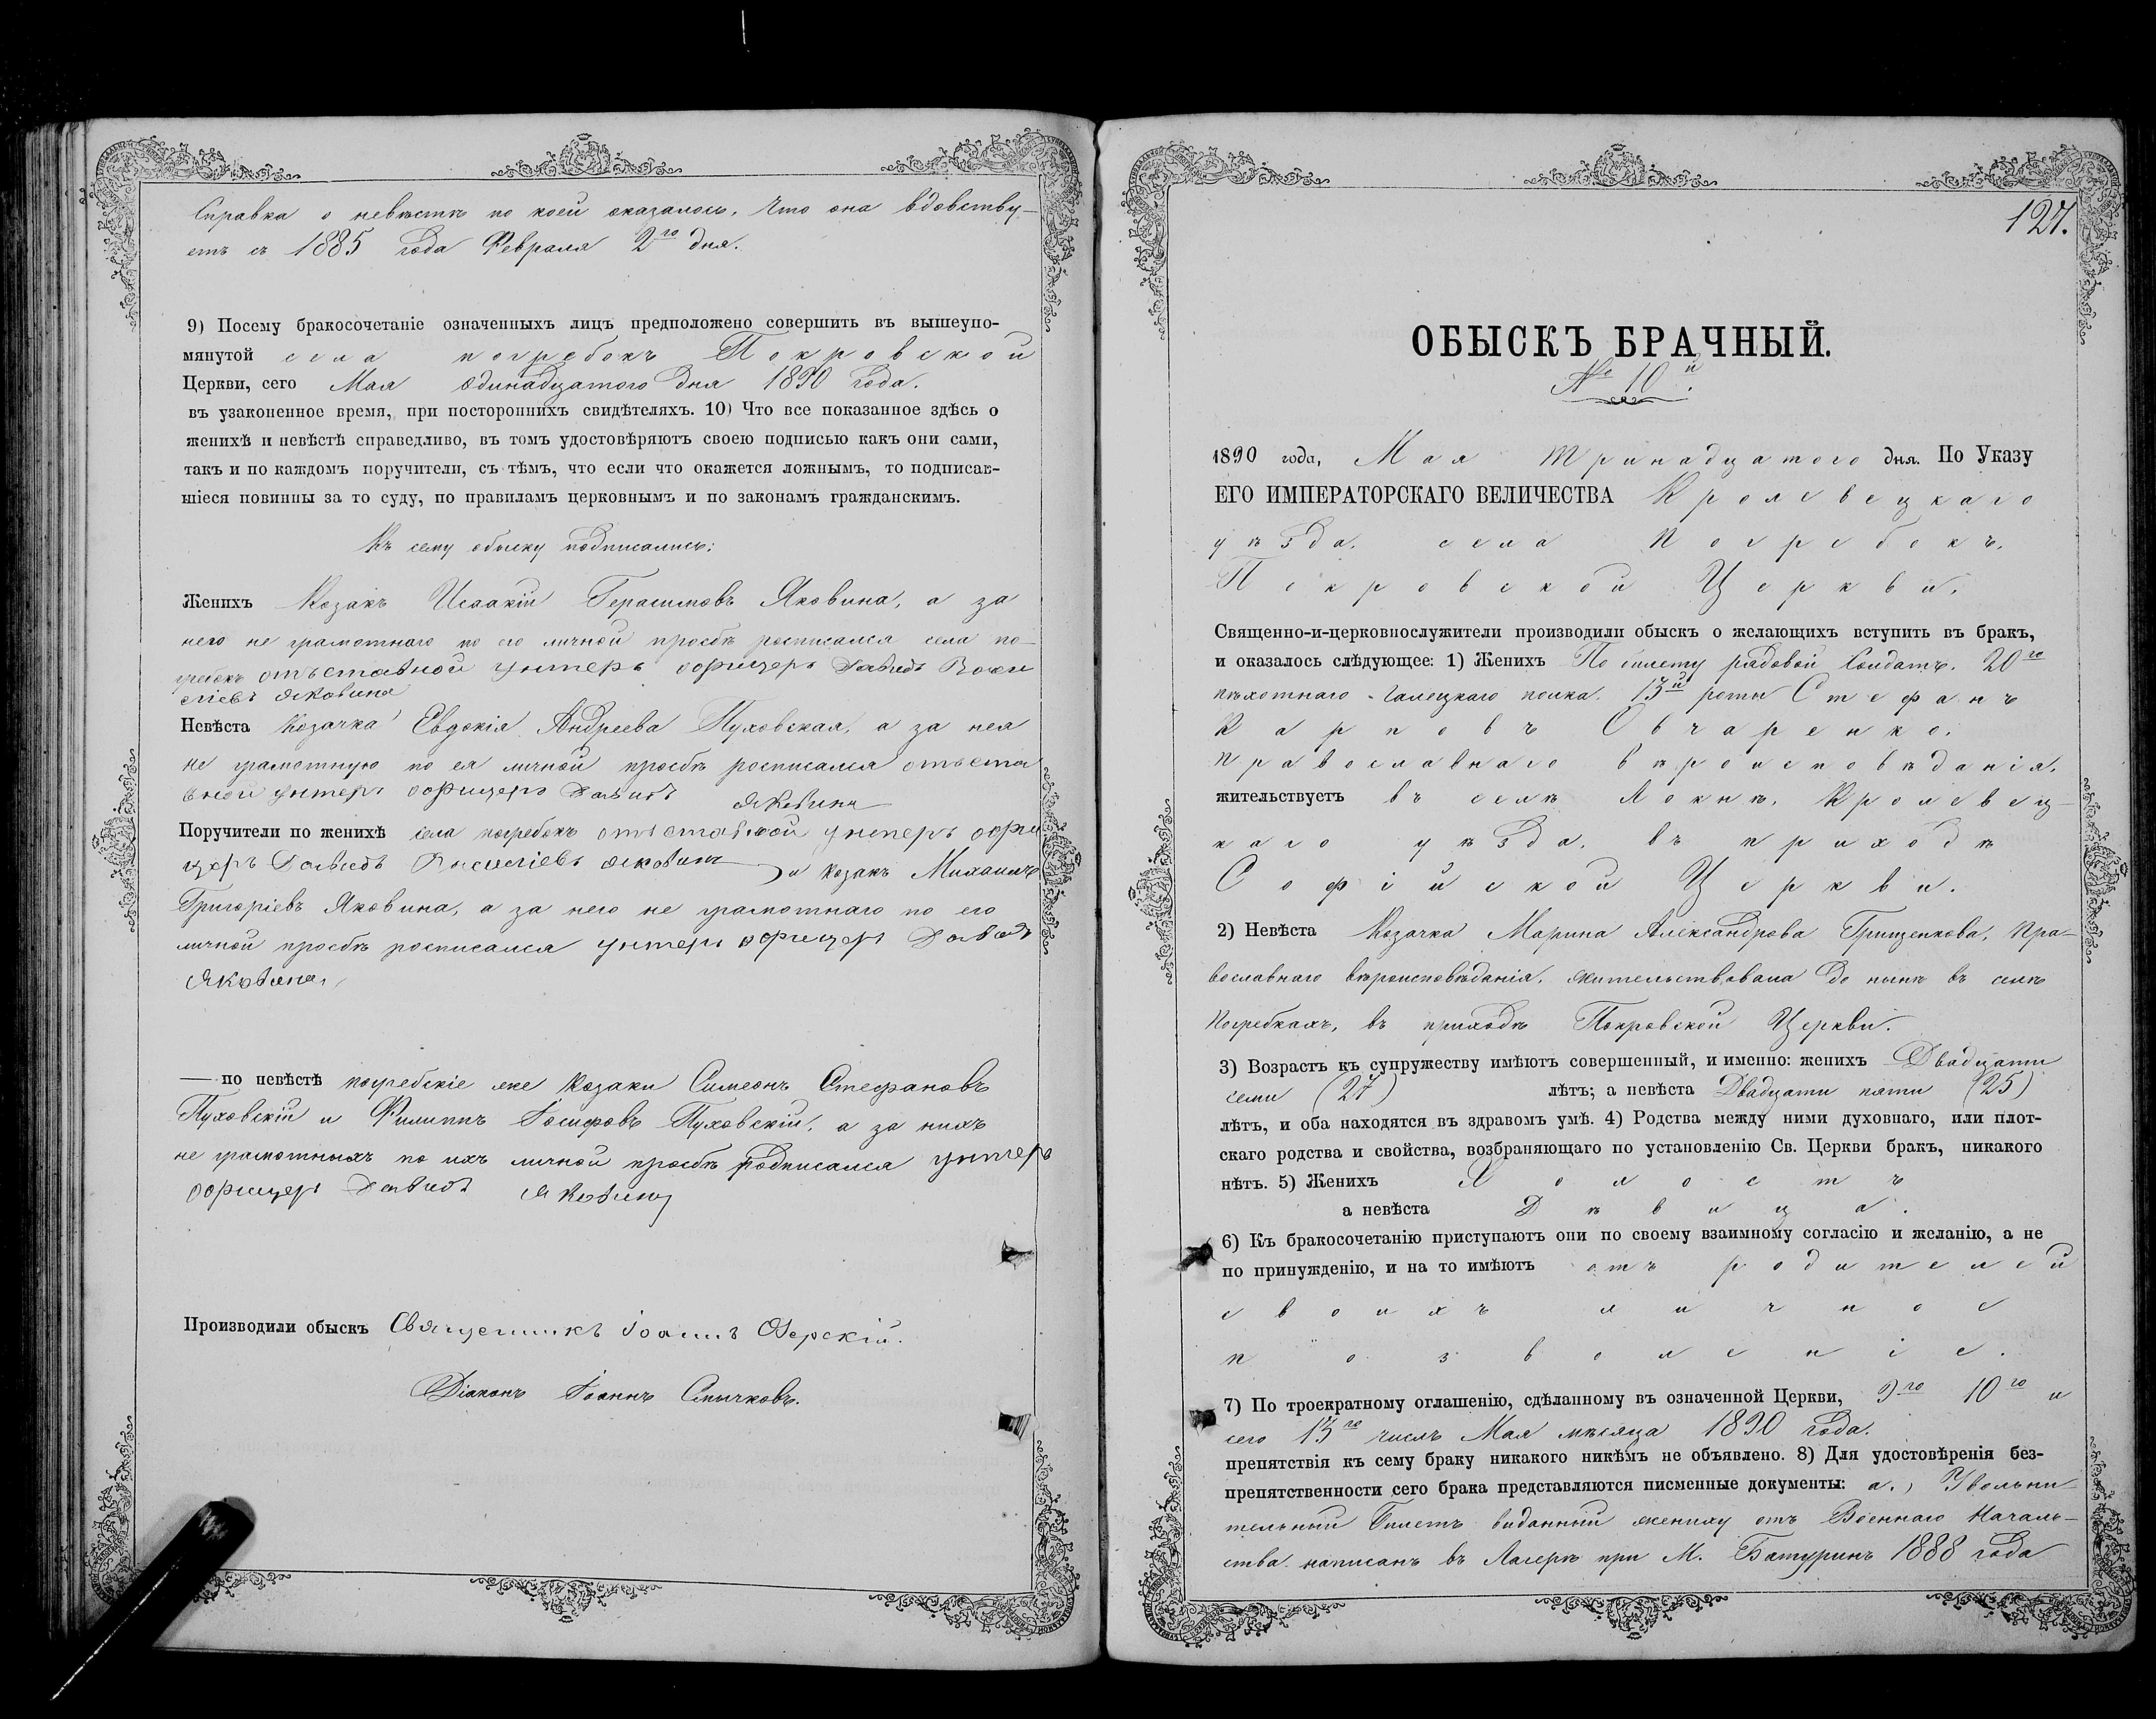 Справка о невѣстѣ по коей оказалось, что она вдовству-
етъ съ 1885 года Февраля 2го дня.
9) Посему бракосочетаніе означенныхъ лицъ предположено совершить въ вышеупо-
мянутой села погребокъ Покровской
Церкви, сего Мая одинадцатого дня 1890 года.
въ узаконенное время, при постороннихъ свидѣтеляхъ. 10) Что все показанное здѣсь о
женихѣ и невѣстѣ справедливо, въ томъ удостовѣряютъ своею подписью какъ они сами,
такъ и по каждомъ поручители, съ тѣмъ, что если что окажется ложнымъ, то подписав-
шіеся повинны за то суду, по правиламъ церковнымъ и по законамъ гражданскимъ.
Къ сему обыску подписались:
Женихъ Козакъ Исаакій Герасимовъ Яковина, а за
него не грамотнаго по его личной просьбѣ росписался села по-
гребокъ отъставной унтеръ офицеръ Давидъ Васи
лиевъ Яковина
Невѣста Козачка Евдокія Андреева Пуховская, а за нея
не грамотную по ея личной просьбѣ росписался отъста
вной унтеръ офицеръ Давидъ Яковина
Поручители по женихѣ села погребокъ отъставной унтеръ офи
церъ Давидъ Яковина и козакъ Михаилъ
Григоріевъ Яковина, а за него не грамотнаго по его
личной просьбѣ росписался унтеръ офицеръ Давидъ
Яковина,
— по невѣстѣ погребскіе же Козаки Симеонъ Стефановъ
Пуховскій и Филиппъ Іосифовъ Пуховскій, а за нихъ
не грамотныхъ по ихъ личной просьбѣ подписался унтеръ
офицеръ Давидъ Яковина
Производили обыскъ Священникъ Іоаннъ Озерскій.
Діаконъ Іоаннъ Смычковъ.
127.
ОБЫСКЪ БРАЧНЫЙ.
№ 10й.
1890 года, Мая Тринадцатого дня. По Указу
ЕГО ИМПЕРАТОРСКАГО ВЕЛИЧЕСТВА Кролевецкаго
уѣзда, села Погребокъ,
Покровской Церкви,
Священно-и-церковнослужители производили обыскъ о желающихъ вступить въ бракъ,
и оказалось слѣдующее: 1) Женихъ По билету рядовой Солдатъ, 20го
пѣхотнаго Галецкаго полка, 13й роты Стефанъ
Карповъ Овчаренко,
православнаго вѣроисповѣданія,
жительствуетъ въ селѣ Локнѣ, Кролевец-
каго уѣзда, въ приходѣ
Софійской Церкви.
2) Невѣста Козачка Марина Александрова Грищенкова, пра-
вославнаго вѣроисповѣданія, жительствовала до нынѣ въ селѣ
Погребкахъ, въ приходѣ Покровской Церкви.
3) Возрастъ къ супружеству имѣютъ совершенный, и именно: женихъ Двадцати
семи (27) лѣтъ; а невѣста Двадцати пяти (25)
лѣтъ, и оба находятся въ здравомъ умѣ. 4) Родства между ними духовнаго, или плот-
скаго родства и свойства, возбраняющаго по установленію Св. Церкви бракъ, никакого
нѣтъ. 5) Женихъ Холостъ
а невѣста Дѣвица.
6) Къ бракосочетанію приступаютъ они по своему взаимному согласію и желанію, а не
по принужденію, и на то имѣютъ отъ родителей
своихъ личное
позволеніе.
7) По троекратному оглашенію, сдѣланному въ означенной Церкви, 9го 10го и
сего 13го числъ Мая мѣсяца 1890 года.
препятствія къ сему браку никакого никѣмъ не объявлено. 8) Для удостовѣренія без-
препятственности сего брака представляются писменные документы: а.) Увольни-
тельный билетъ виданный жениху отъ Военнаго Началь-
ства, написанъ въ Лагерѣ при М. Батуринѣ 1888 года